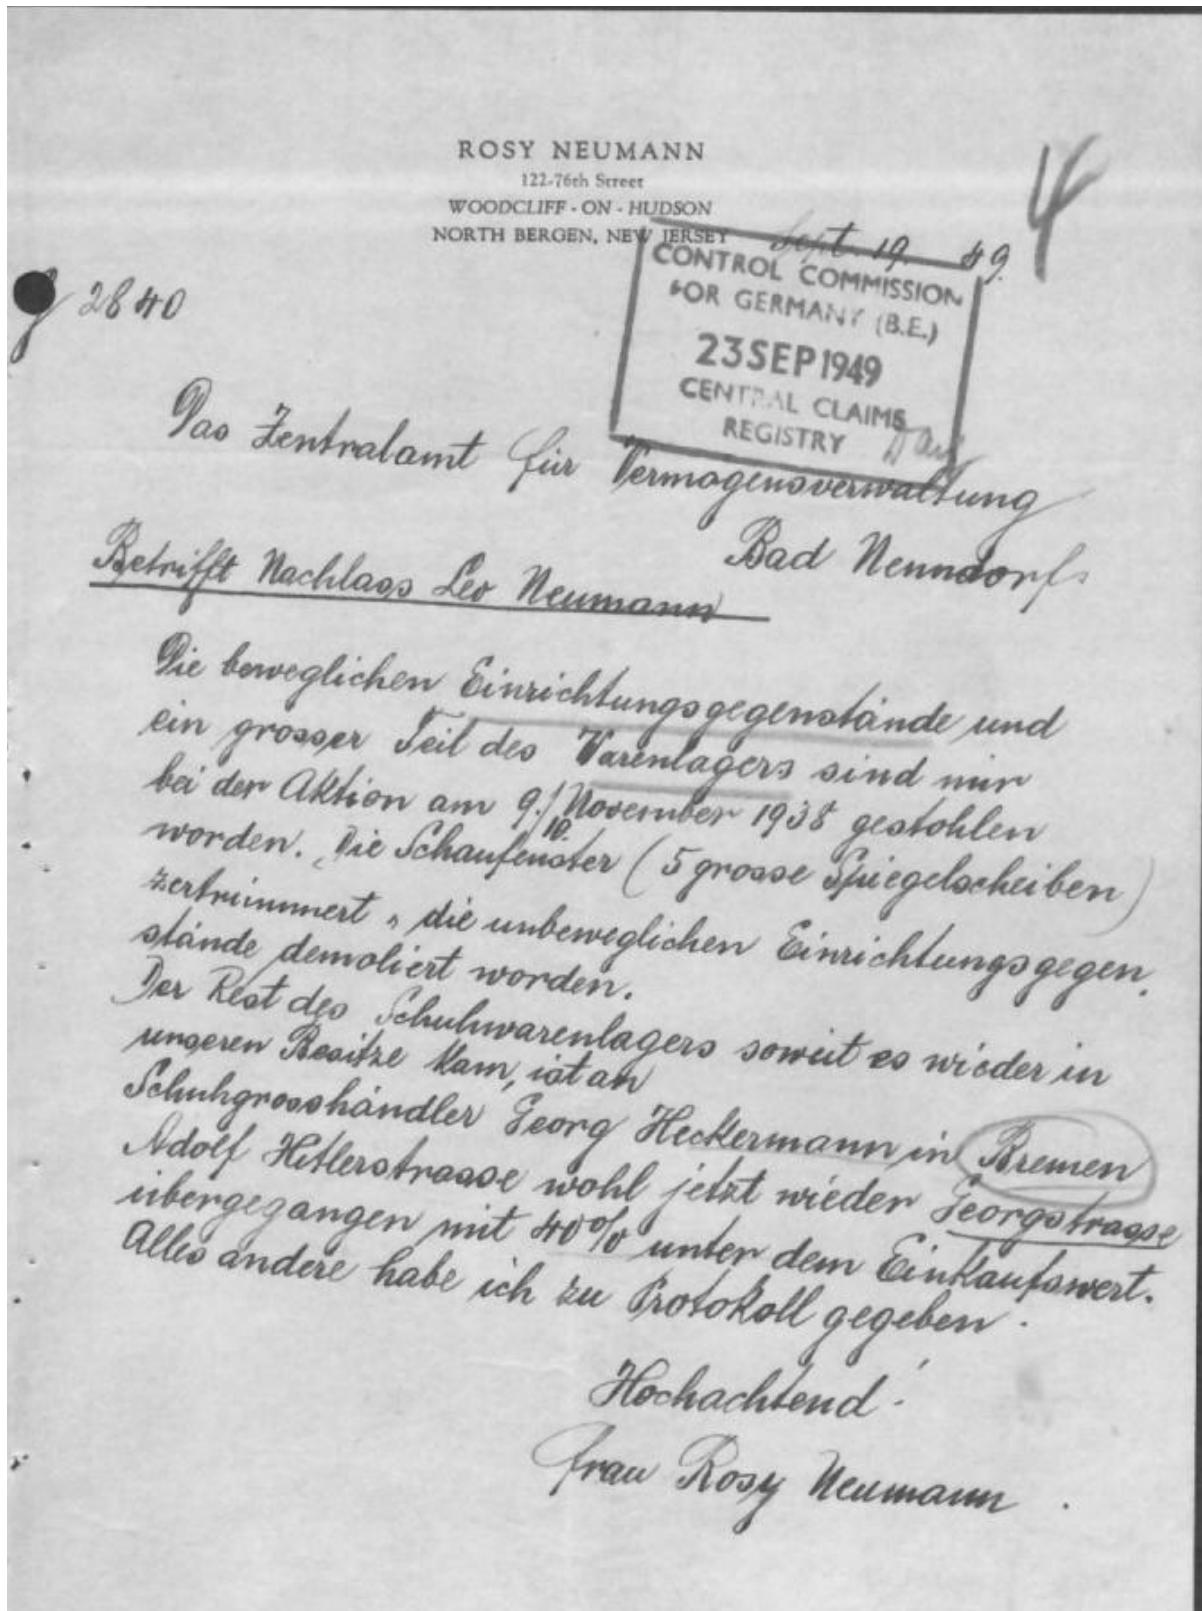 ROSY NEUMANN
122-76th Street
WOODCLIFF - ON - HUDSON
NORTH BERGEN, NEW JERSEY
4
Sept. 19. 49.
CONTROL COMMISSION
FOR GERMANY (B.E.)
23 SEP 1949
CENTRAL CLAIMS
REGISTRY
2840
Das Zentralamt für Vermögensverwaltung
Bad Nenndorf
Betrifft Nachlass Leo Neumann
Die beweglichen Einrichtungsgegenstände und
ein grosser Teil des Warenlagers sind mir
bei der Aktion am 9./10. November 1938 gestohlen
worden. Die Schaufenster (5 grosse Spiegelscheiben)
zertrümmert, die unbeweglichen Einrichtungsgegen
stände demoliert worden.
Der Rest des Schuhwarenlagers soweit es wieder in
unseren Besitze kam, ist an
Schuhgrosshändler Georg Heckermann in Bremen
Adolf Hitlerstrasse wohl jetzt wieder Georgstrasse
übergegangen mit 40% unter dem Einkaufswert.
Alles andere habe ich zu Protokoll gegeben.
Hochachtend!
Frau Rosy Neumann.